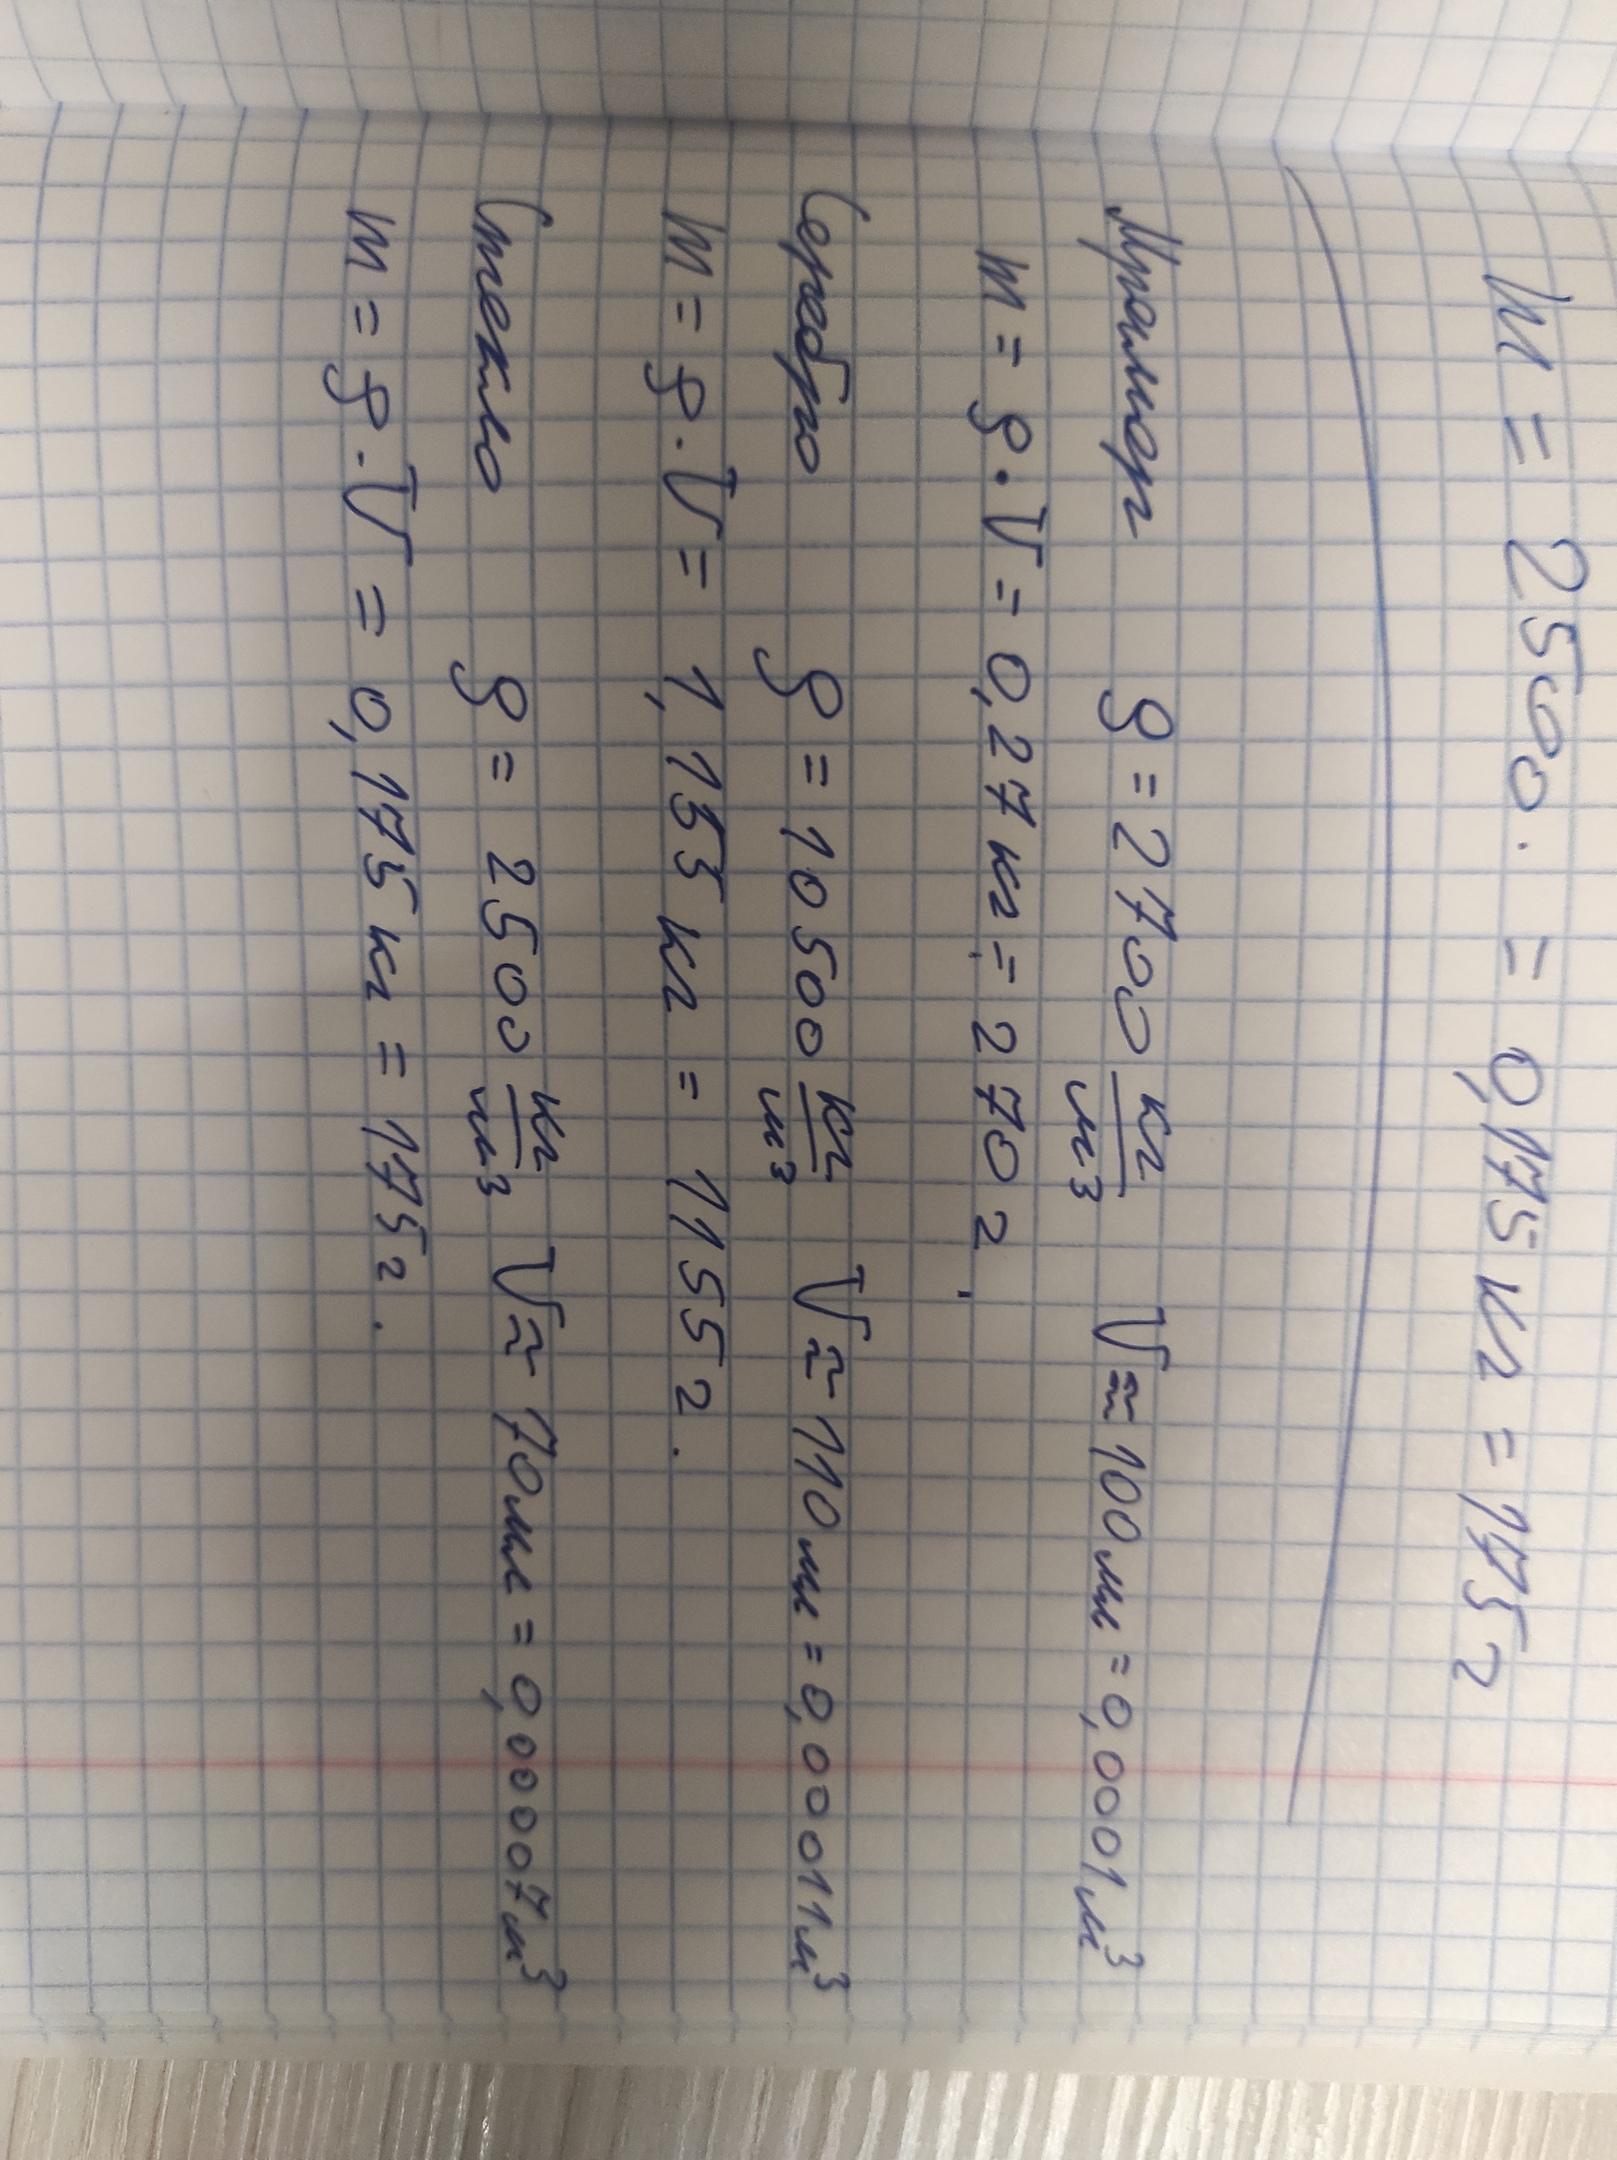 m = 2500 · = 0,175 кг = 175 г
Мрамор ρ = 2700 кг/м³ V ≈ 100 мл = 0,0001 м³
m = ρ · V = 0,27 кг = 270 г.
Серебро ρ = 10500 кг/м³ V ≈ 110 мл = 0,00011 м³
m = ρ · V = 1,155 кг = 1155 г.
Стекло ρ = 2500 кг/м³ V ≈ 70 мл = 0,00007 м³
m = ρ · V = 0,175 кг = 175 г.